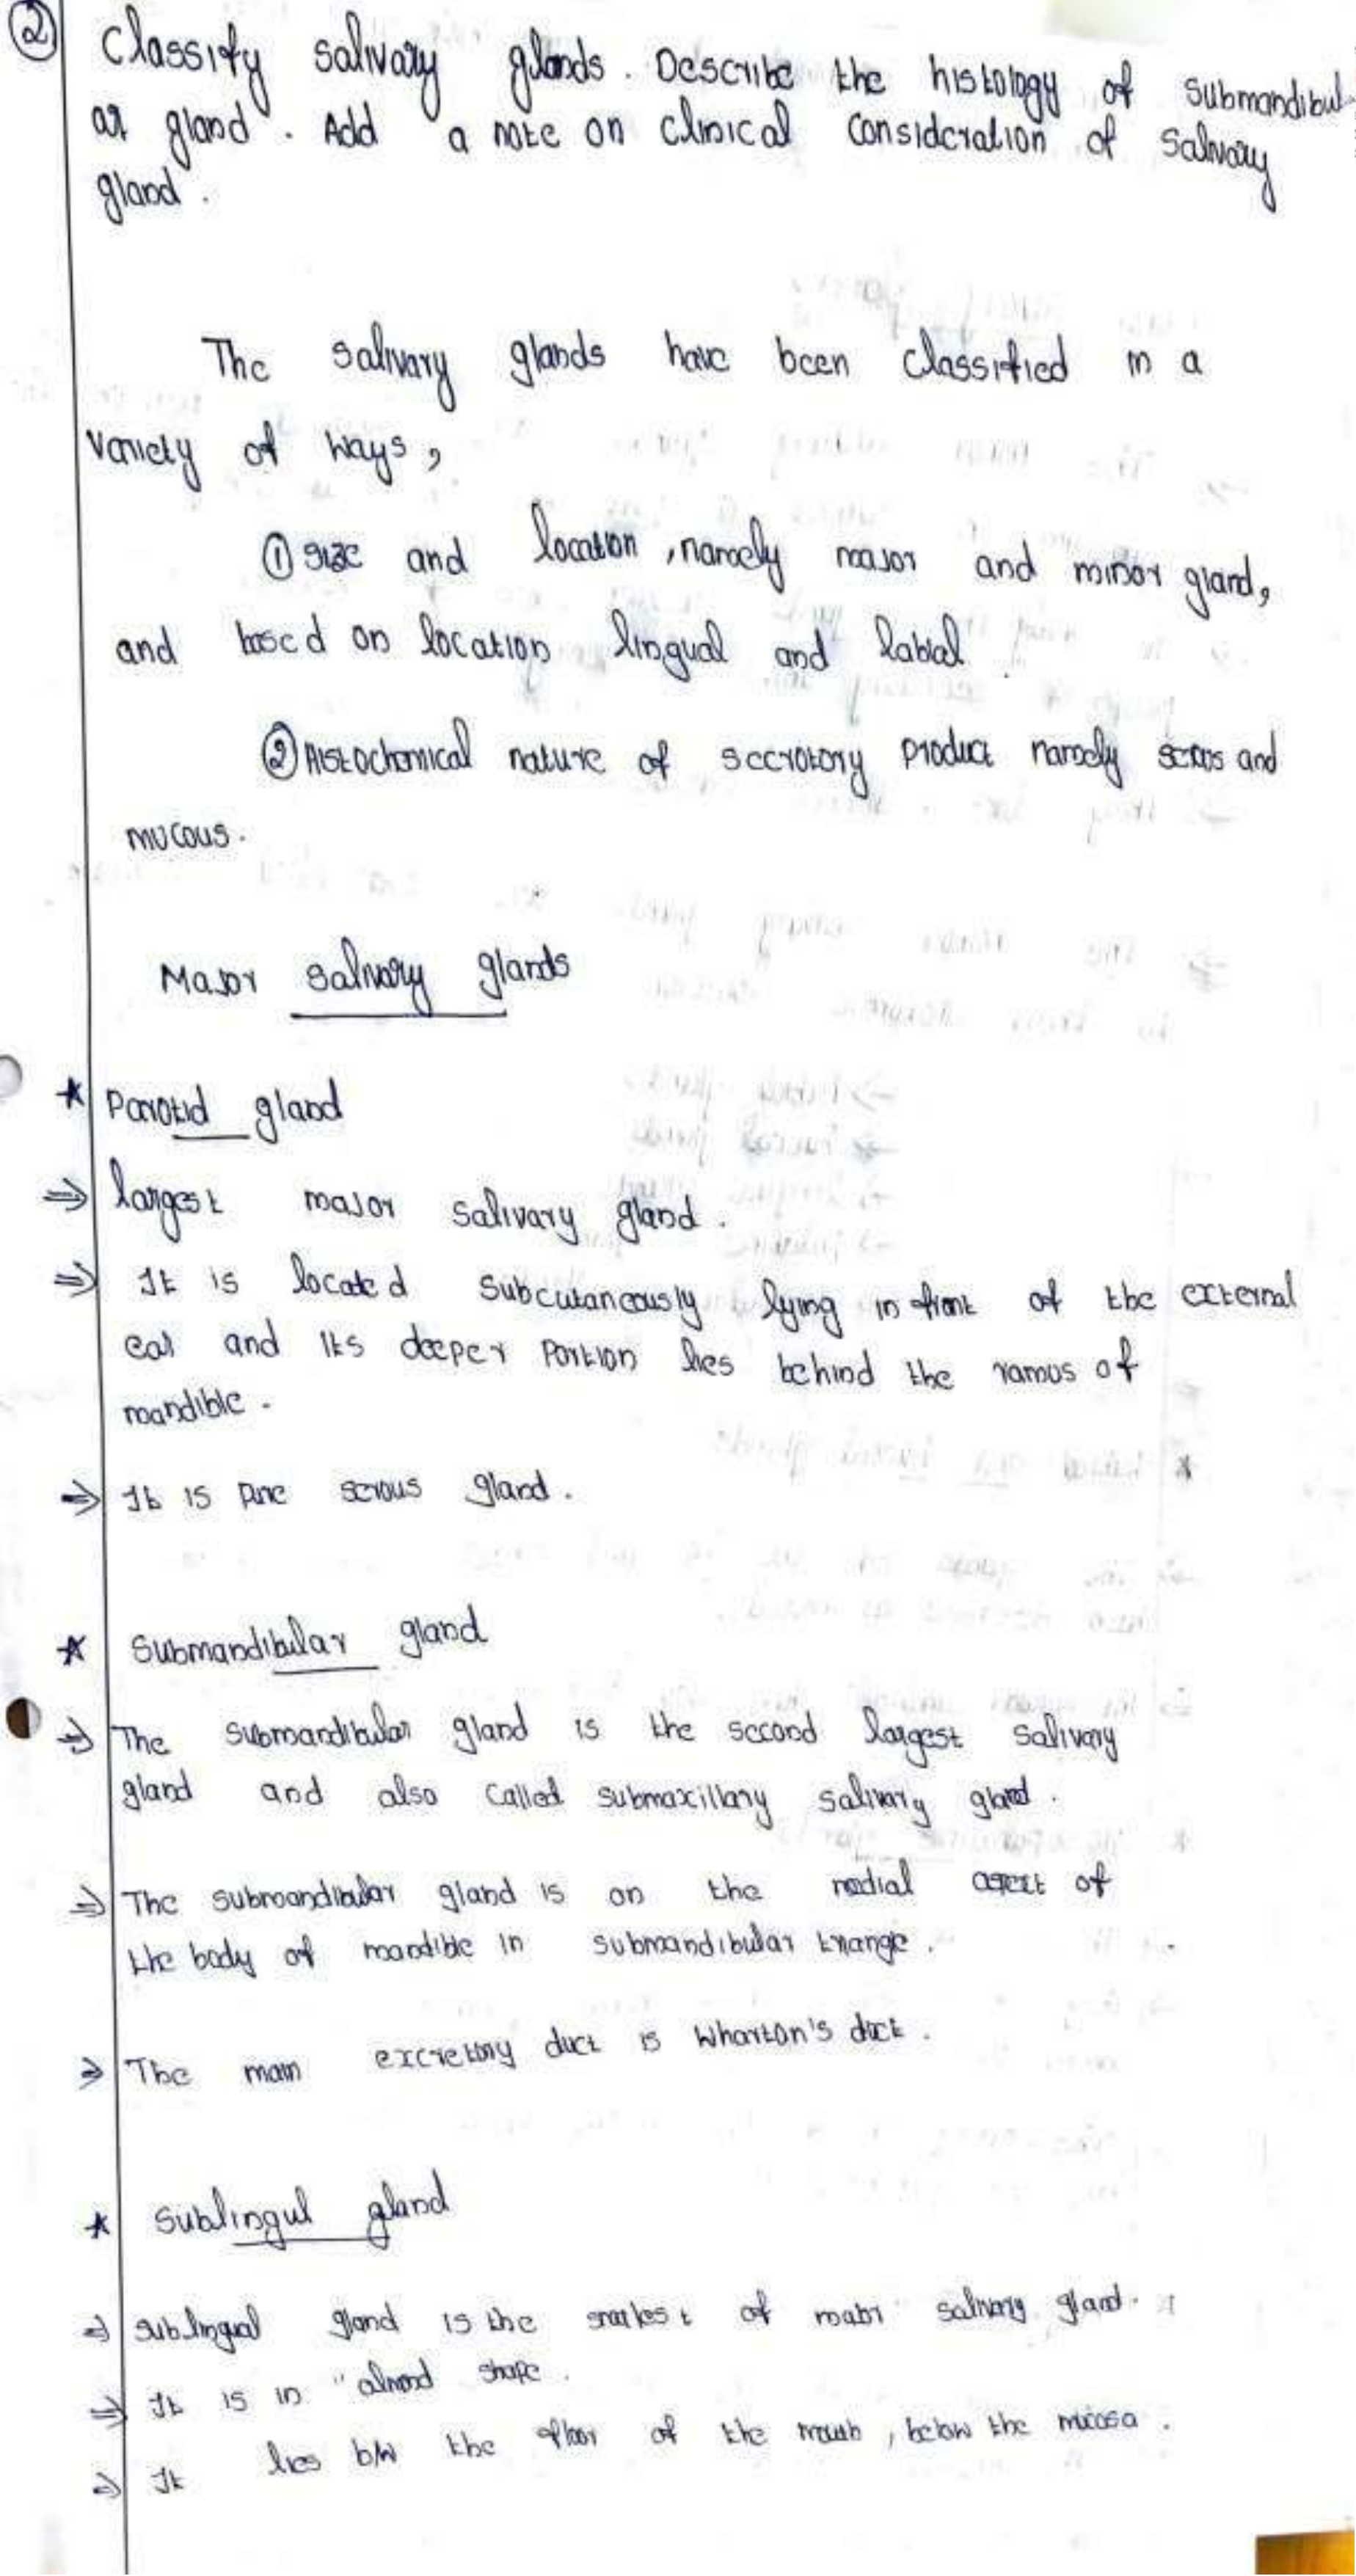 ② Classify salivary glands. Describe the histology of submandibul-
ar gland. Add a note on clinical consideration of salivary
gland.
The salivary glands have been classified in a
variety of ways,
① size and location, namely major and minor gland,
and based on location lingual and labial.
② Histochemical nature of secrotory product namely serous and
mucous.
Major salivary glands
* Parotid gland
⇒ largest major salivary gland.
⇒ It is located subcutaneously lying in front of the external
ear and its deeper portion lies behind the ramus of
mandible.
⇒ It is pure serous gland.
* Submandibular gland
⇒ The submandibular gland is the second largest salivary
gland and also called submaxillary salivary gland.
⇒ The submandibular gland is on the medial aspect of
the body of mandible in submandibular triangle.
⇒ The main excretory duct is Wharton's duct.
* Sublingul gland
⇒ sublingual gland is the smallest of major salivary gland.
⇒ It is in "almond shape.
⇒ It lies b/w the floor of the mouth, below the mucosa.